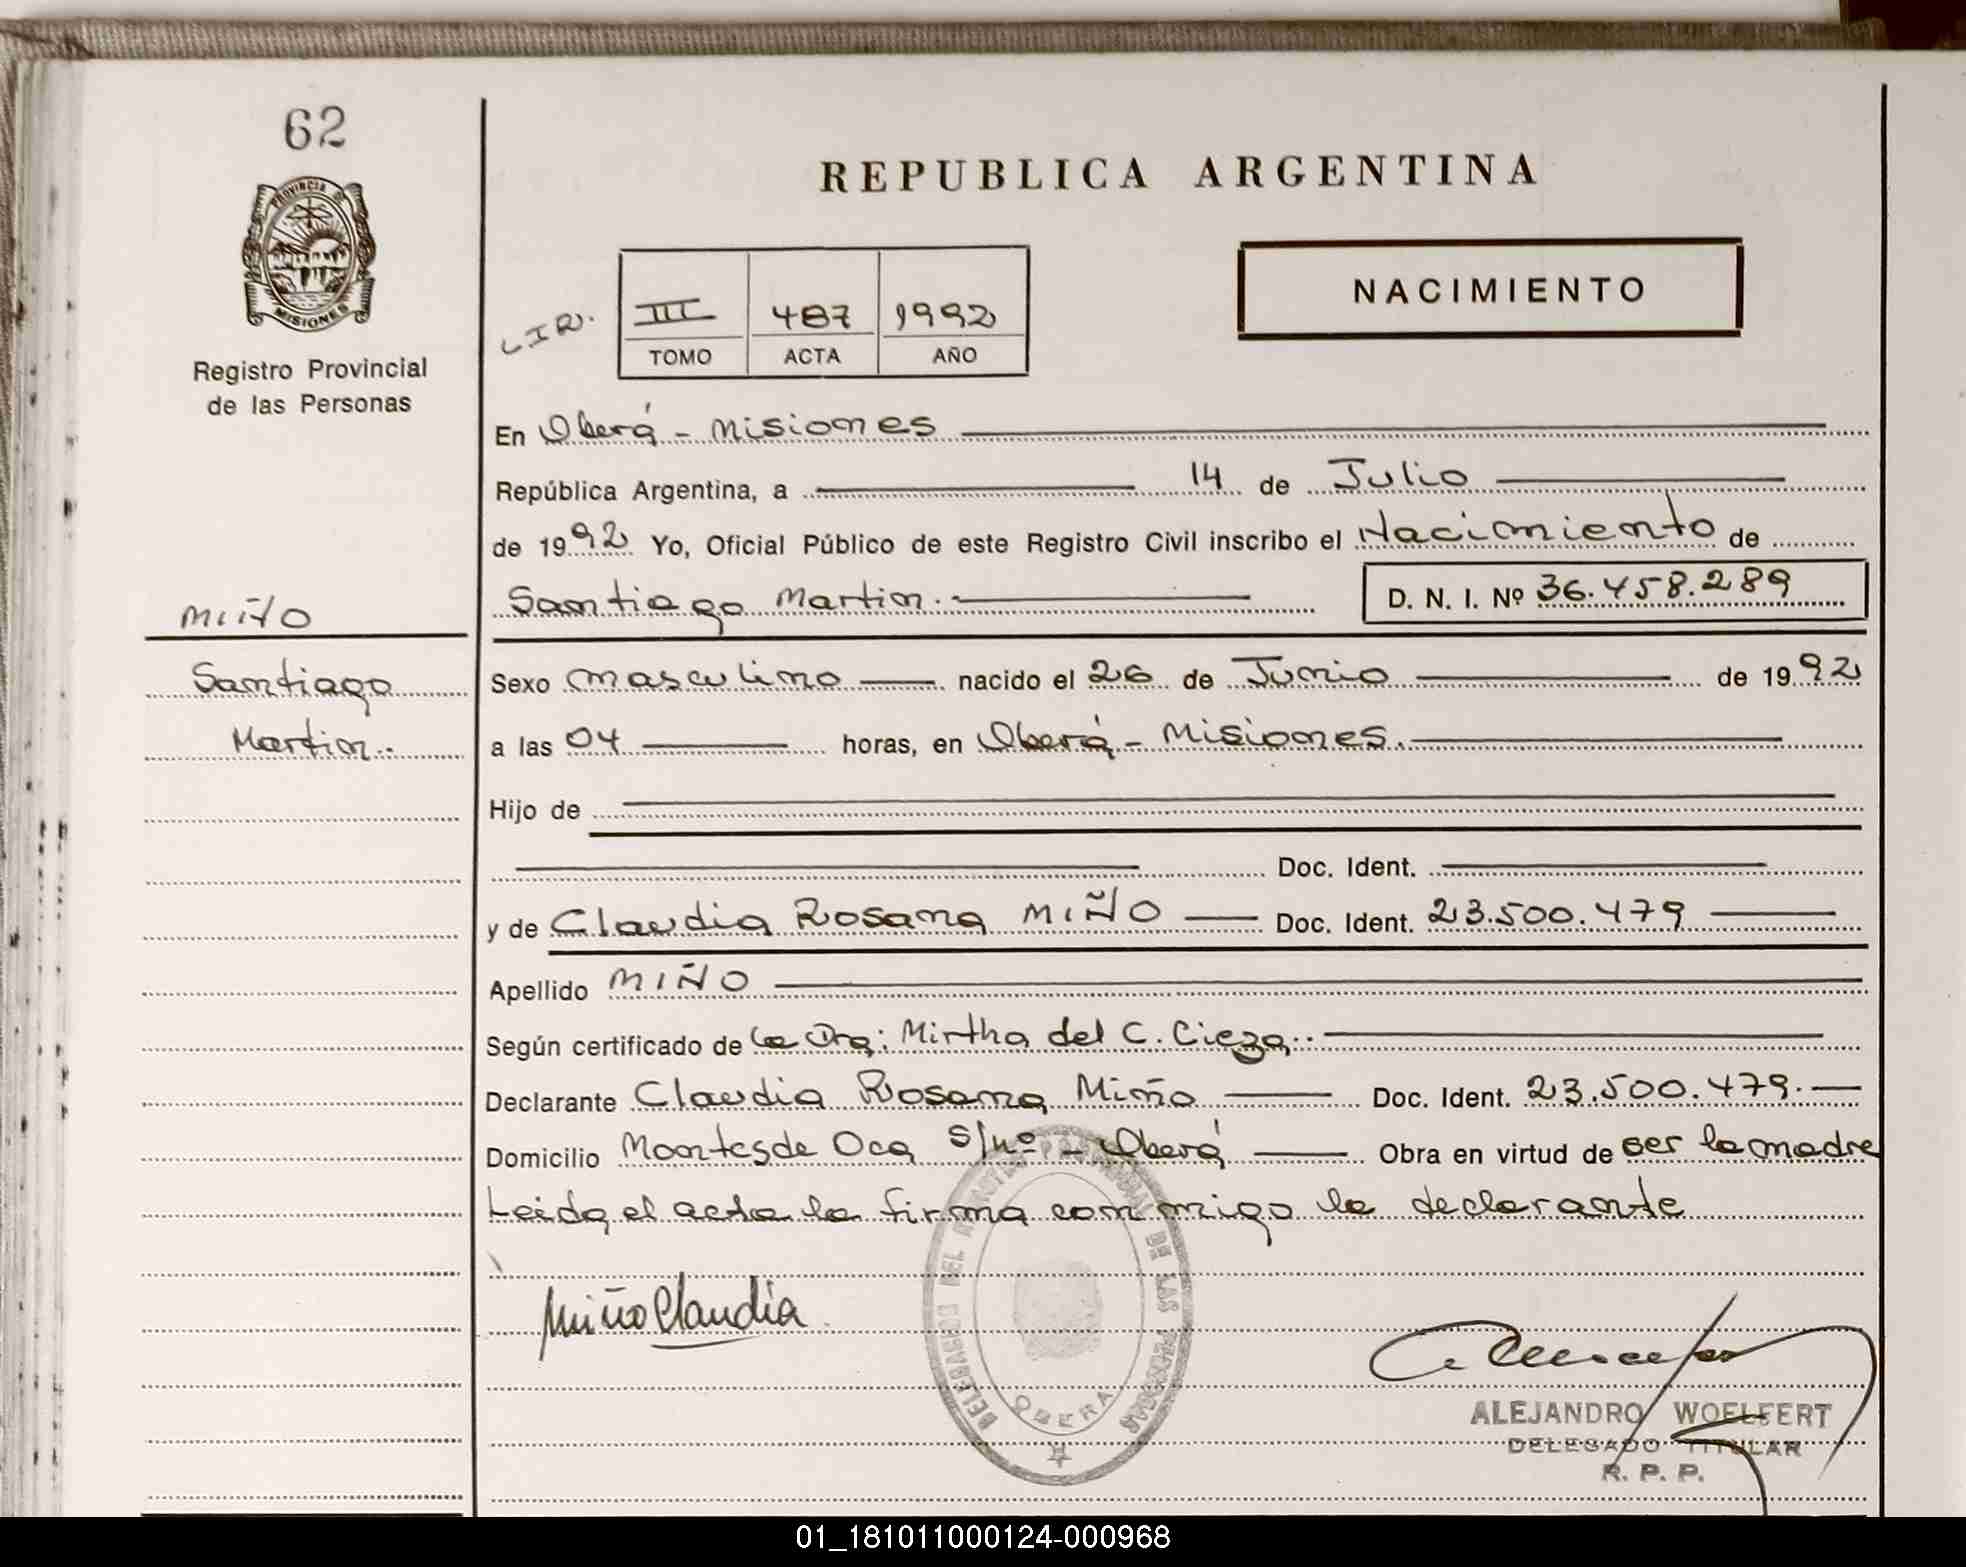 62
PROVINCIA DE
MISIONES
Registro Provincial
de las Personas
REPUBLICA ARGENTINA
NACIMIENTO
III 487 1992
TOMO ACTA AÑO
En Oberá - Misiones
República Argentina, a 14 de Julio
de 1992 Yo, Oficial Público de este Registro Civil inscribo el Nacimiento de
Santiago Martin. D. N. I. Nº 36.458.289
MIÑO
Santiago
Martin..
Sexo masculino nacido el 26 de Junio de 1992
a las 04 horas, en Oberá - Misiones.
Hijo de
Doc. Ident.
y de Claudia Rosana MIÑO Doc. Ident. 23.500.479
Apellido MIÑO
Según certificado de la Dra: Mirtha del C. Cieza..
Declarante Claudia Rosana Miño Doc. Ident. 23.500.479.
Domicilio Montes de Oca S/Nº - Oberá Obra en virtud de ser la madre
Leida el acta la firma conmigo la declarante
Miño Claudia
DE LAS PERSONAS
OBERA
ALEJANDRO WOELFERT
DELEGADO TITULAR
R. P. P.
01_181011000124-000968